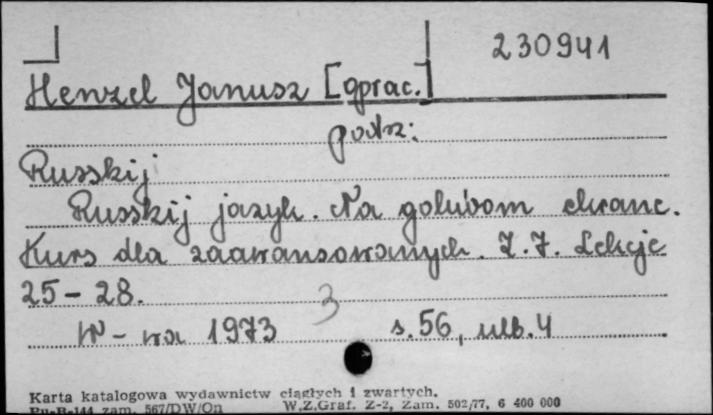 230941
Henzel Janusz [oprac.]
podz:
Russkij
Russkij jazyk. Na golubom ekrane.
Kurs dla zaawansowanych. Z.7. Lekcje
25-28.
3
W-wa 1973 s.56, nlb.4
Karta katalogowa wydawnictw ciągłych i zwartych.
Pu-B-144 zam. 567/DW/On W.Z.Graf. Z-2, Zam. 502/77, 6 400 000